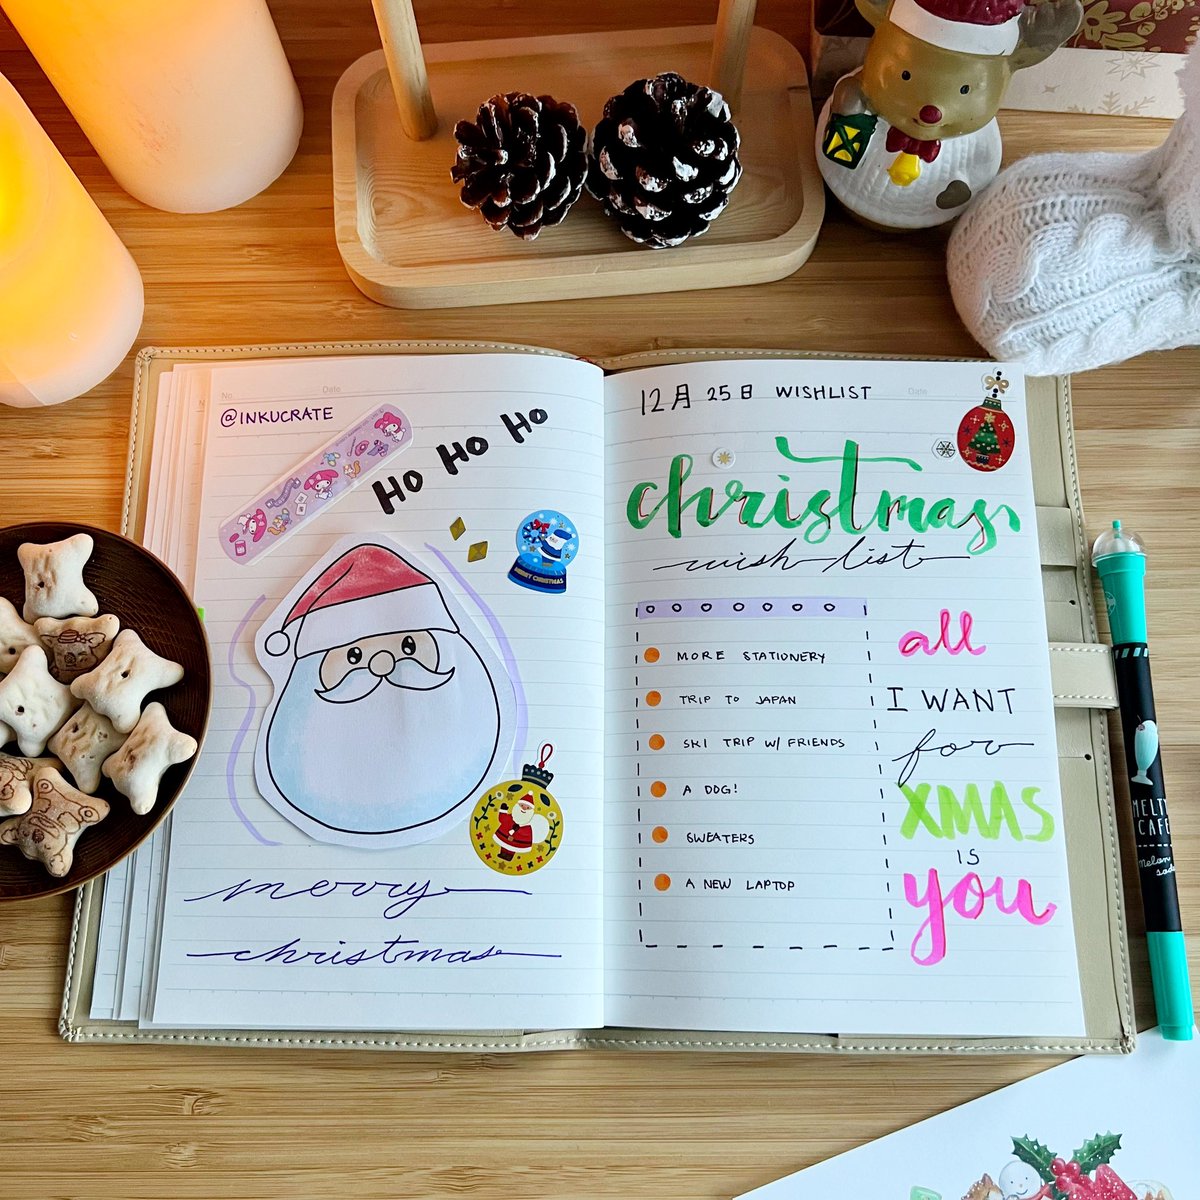 No.
Date
@INKUCRATE
HO HO HO
MERRY CHRISTMAS
merry
christmas
12月 25日 WISHLIST
Date
christmas
wish list
MORE STATIONERY
TRIP TO JAPAN
SKI TRIP W/ FRIENDS
A DOG!
SWEATERS
A NEW LAPTOP
all
I WANT
for
XMAS
IS
you
MELTY
CAFE
Melon
soda